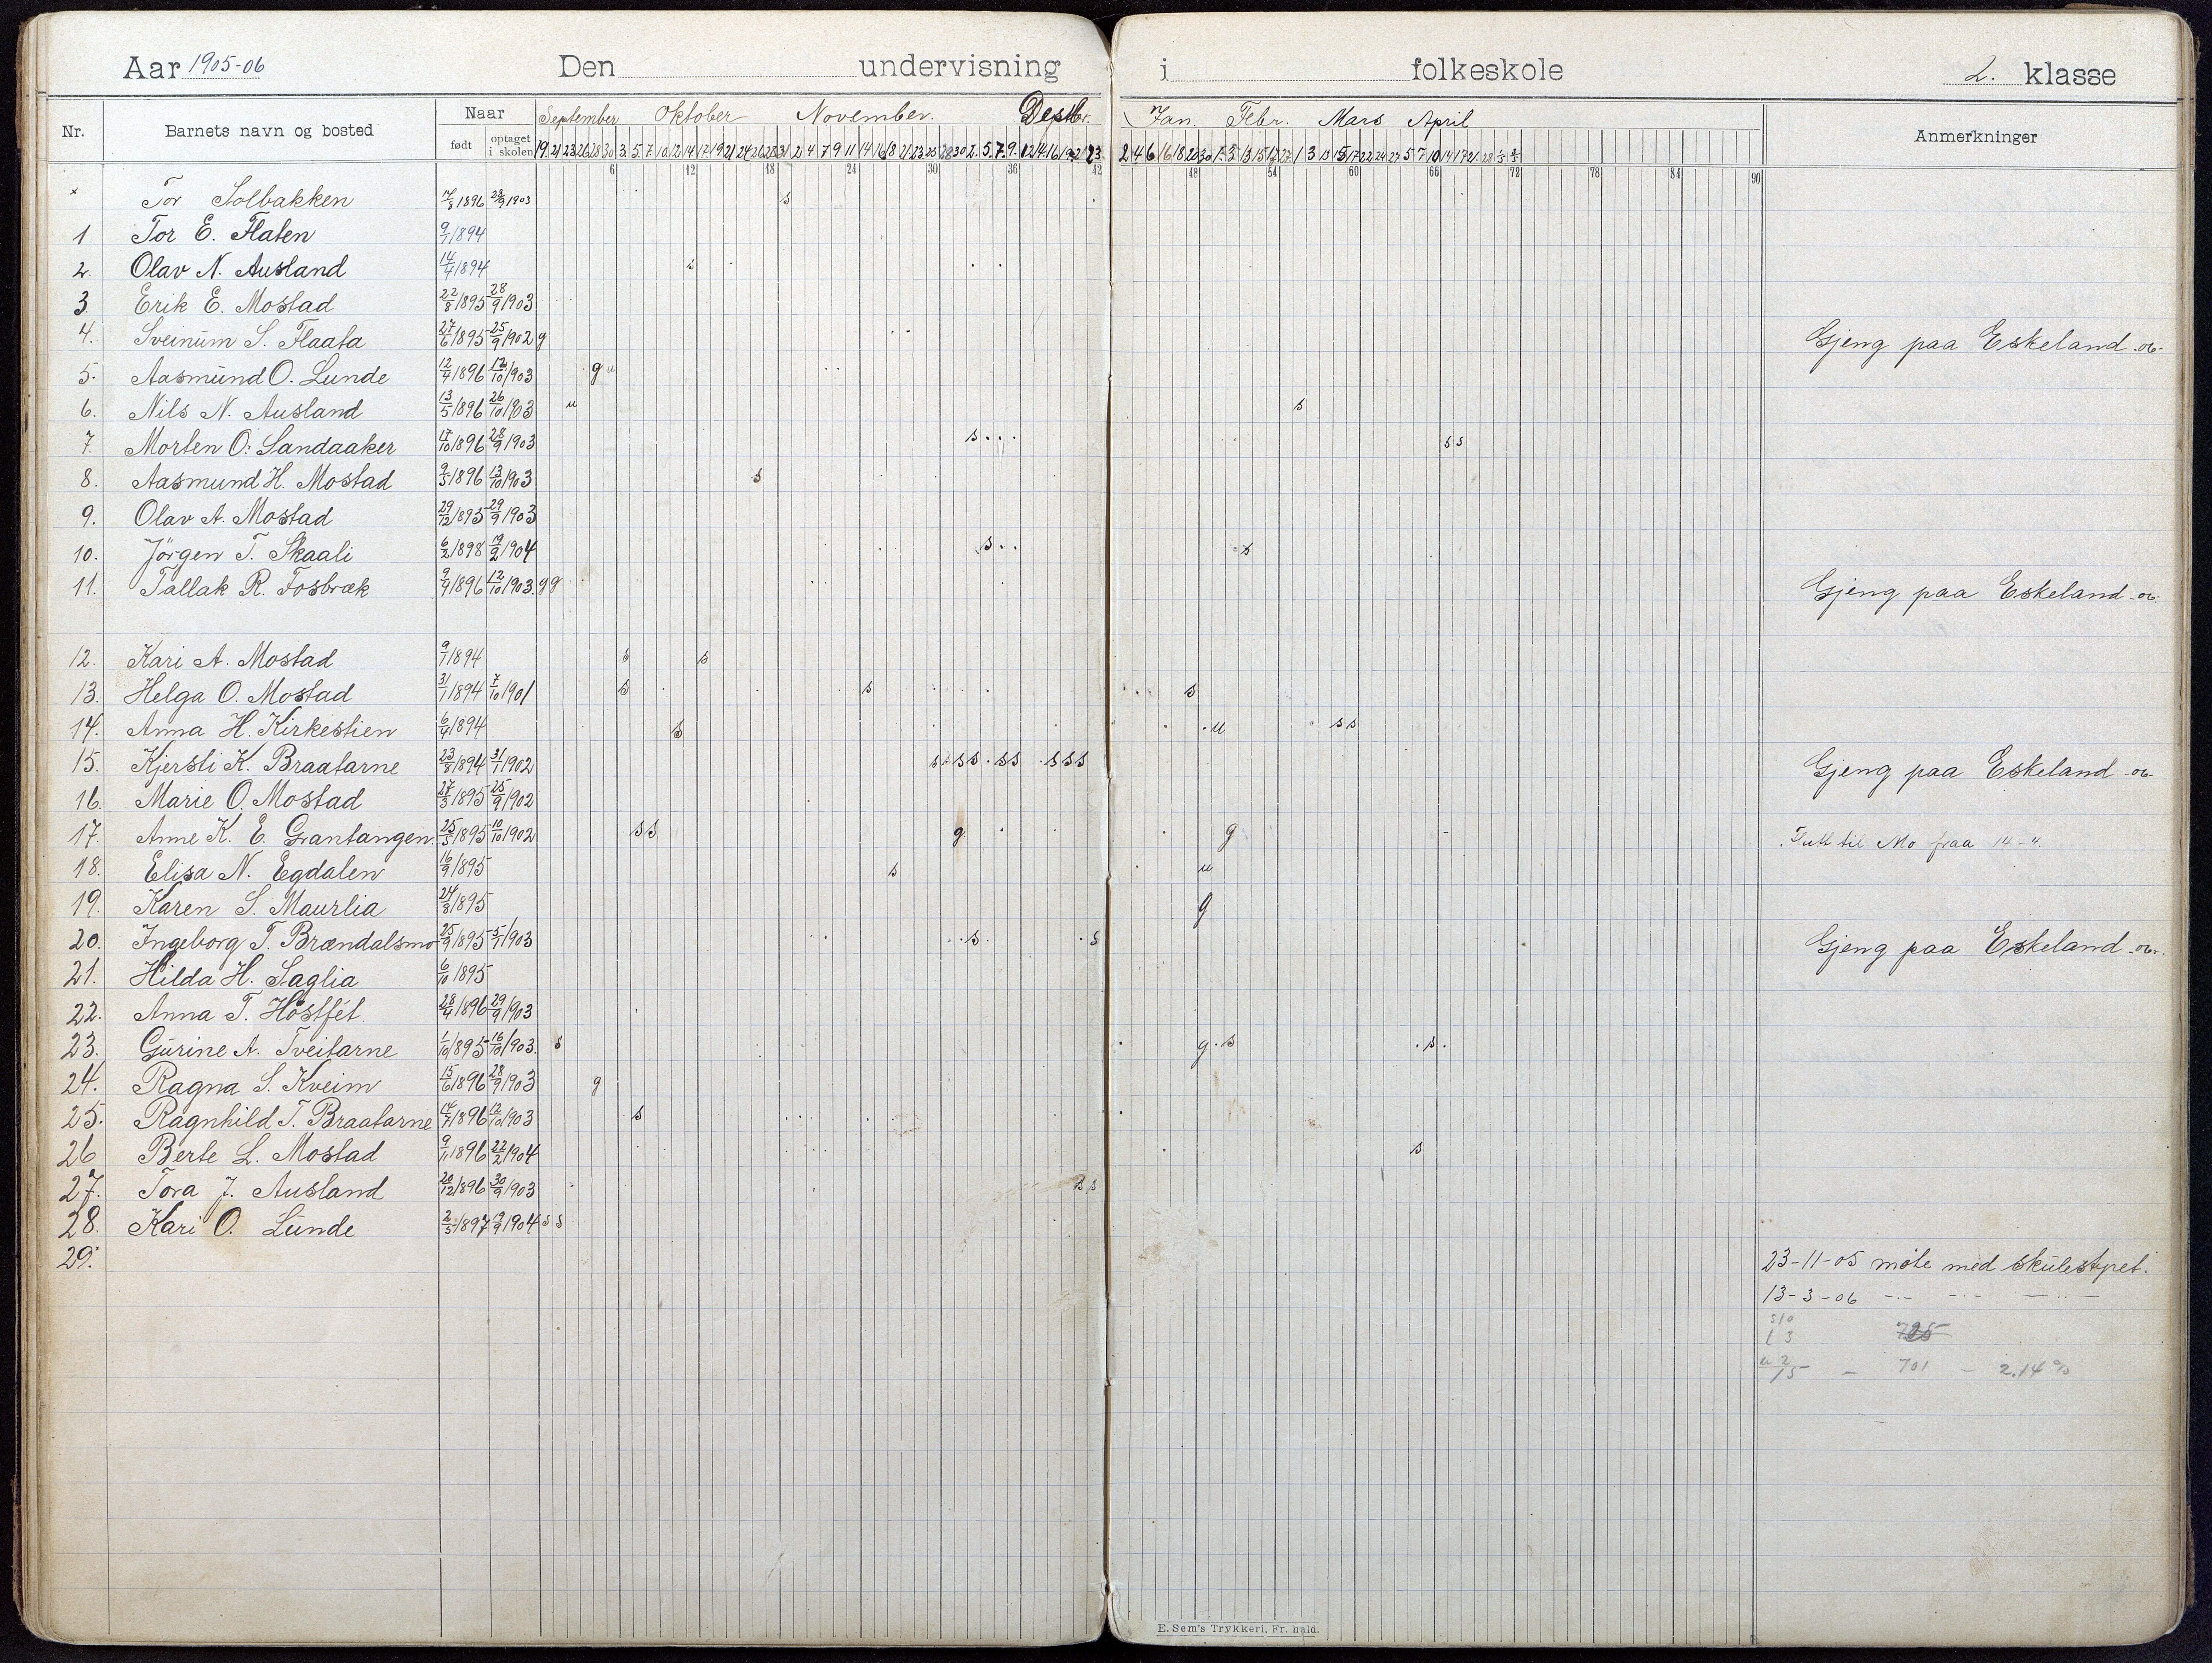 Aar 1905-06 Den undervisning i folkeskole 2. klasse
Nr. Barnets navn og bosted Naar født optaget i skolen September Oktober November. Desbr. Jan. Febr. Mars April Anmerkninger
6 12 18 24 30 36 42 48 54 60 66 72 78 84 90
× Tor Solbakken 17/8 1896 28/9 1903 s
1 Tor E. Flaten 9/1 1894
2. Olav N. Ausland 14/4 1894 s
3 Erik E. Mostad 22/8 1895 28/9 1903
4. Sveinum S. Flaata 27/6 1895 25/9 1902 g Gjeng paa Eskeland -06-
5. Aasmund O. Lunde 12/4 1896 12/10 1903 g u
6. Nils N. Ausland 13/5 1896 26/10 1903 u s
7. Morten O. Sandaaker 17/10 1896 28/9 1903 s . . . s s
8. Aasmund H. Mostad 9/5 1896 13/10 1903 s
9. Olav A. Mostad 29/12 1895 29/9 1903
10. Jörgen T. Skaali 6/2 1898 19/2 1904 s . . s
11. Tallak R. Fosbræk 9/4 1896 12/10 1903. g g Gjeng paa Eskeland -06-
12. Kari A. Mostad 9/1 1894 s s
13. Helga O. Mostad 31/1 1894 7/10 1901 s s s
14. Anna H. Kirkestien 6/4 1894 s . u s s
15. Kjersti K. Braatarne 23/8 1894 31/1 1902 s s s s . s s . s s s Gjeng paa Eskeland -06-
16. Marie O. Mostad 27/3 1895 25/9 1902
17. Anne K. E. Grantangen. 25/5 1895 10/10 1902 s s g g - . Flutt til Mo fraa 14-4.
18. Elisa N. Egdalen 16/9 1895 s u
19. Karen S. Maurlia 24/8 1895 g
20. Ingeborg T. Brændalsmo 25/9 1895 5/1 1903 . s . . s Gjeng paa Eskeland -06-.
21. Hilda H. Saglia 6/10 1895
22. Anna T. Höstfét 28/4 1896 29/9 1903
23. Gurine A. Tveitarne 1/10 1895 16/10 1903. s g . s . s .
24. Ragna S. Kveim 15/6 1896 28/9 1903 g
25. Ragnhild T. Braatarne 14/7 1896 12/10 1903 s
26 Berte L. Mostad 9/11 1896 22/2 1904 s
27. Tora J. Ausland 20/12 1896 30/9 1903 s s
28. Kari O. Lunde 2/5 1897 19/9 1904 s s
29.
23-11-05 möte med skulestyret.
13-3-06 -·- -·- -··-
s 10
l 3 725
u 2
15 - 701 - 2.14 %
E. Sem's Trykkeri, Fr. hald.